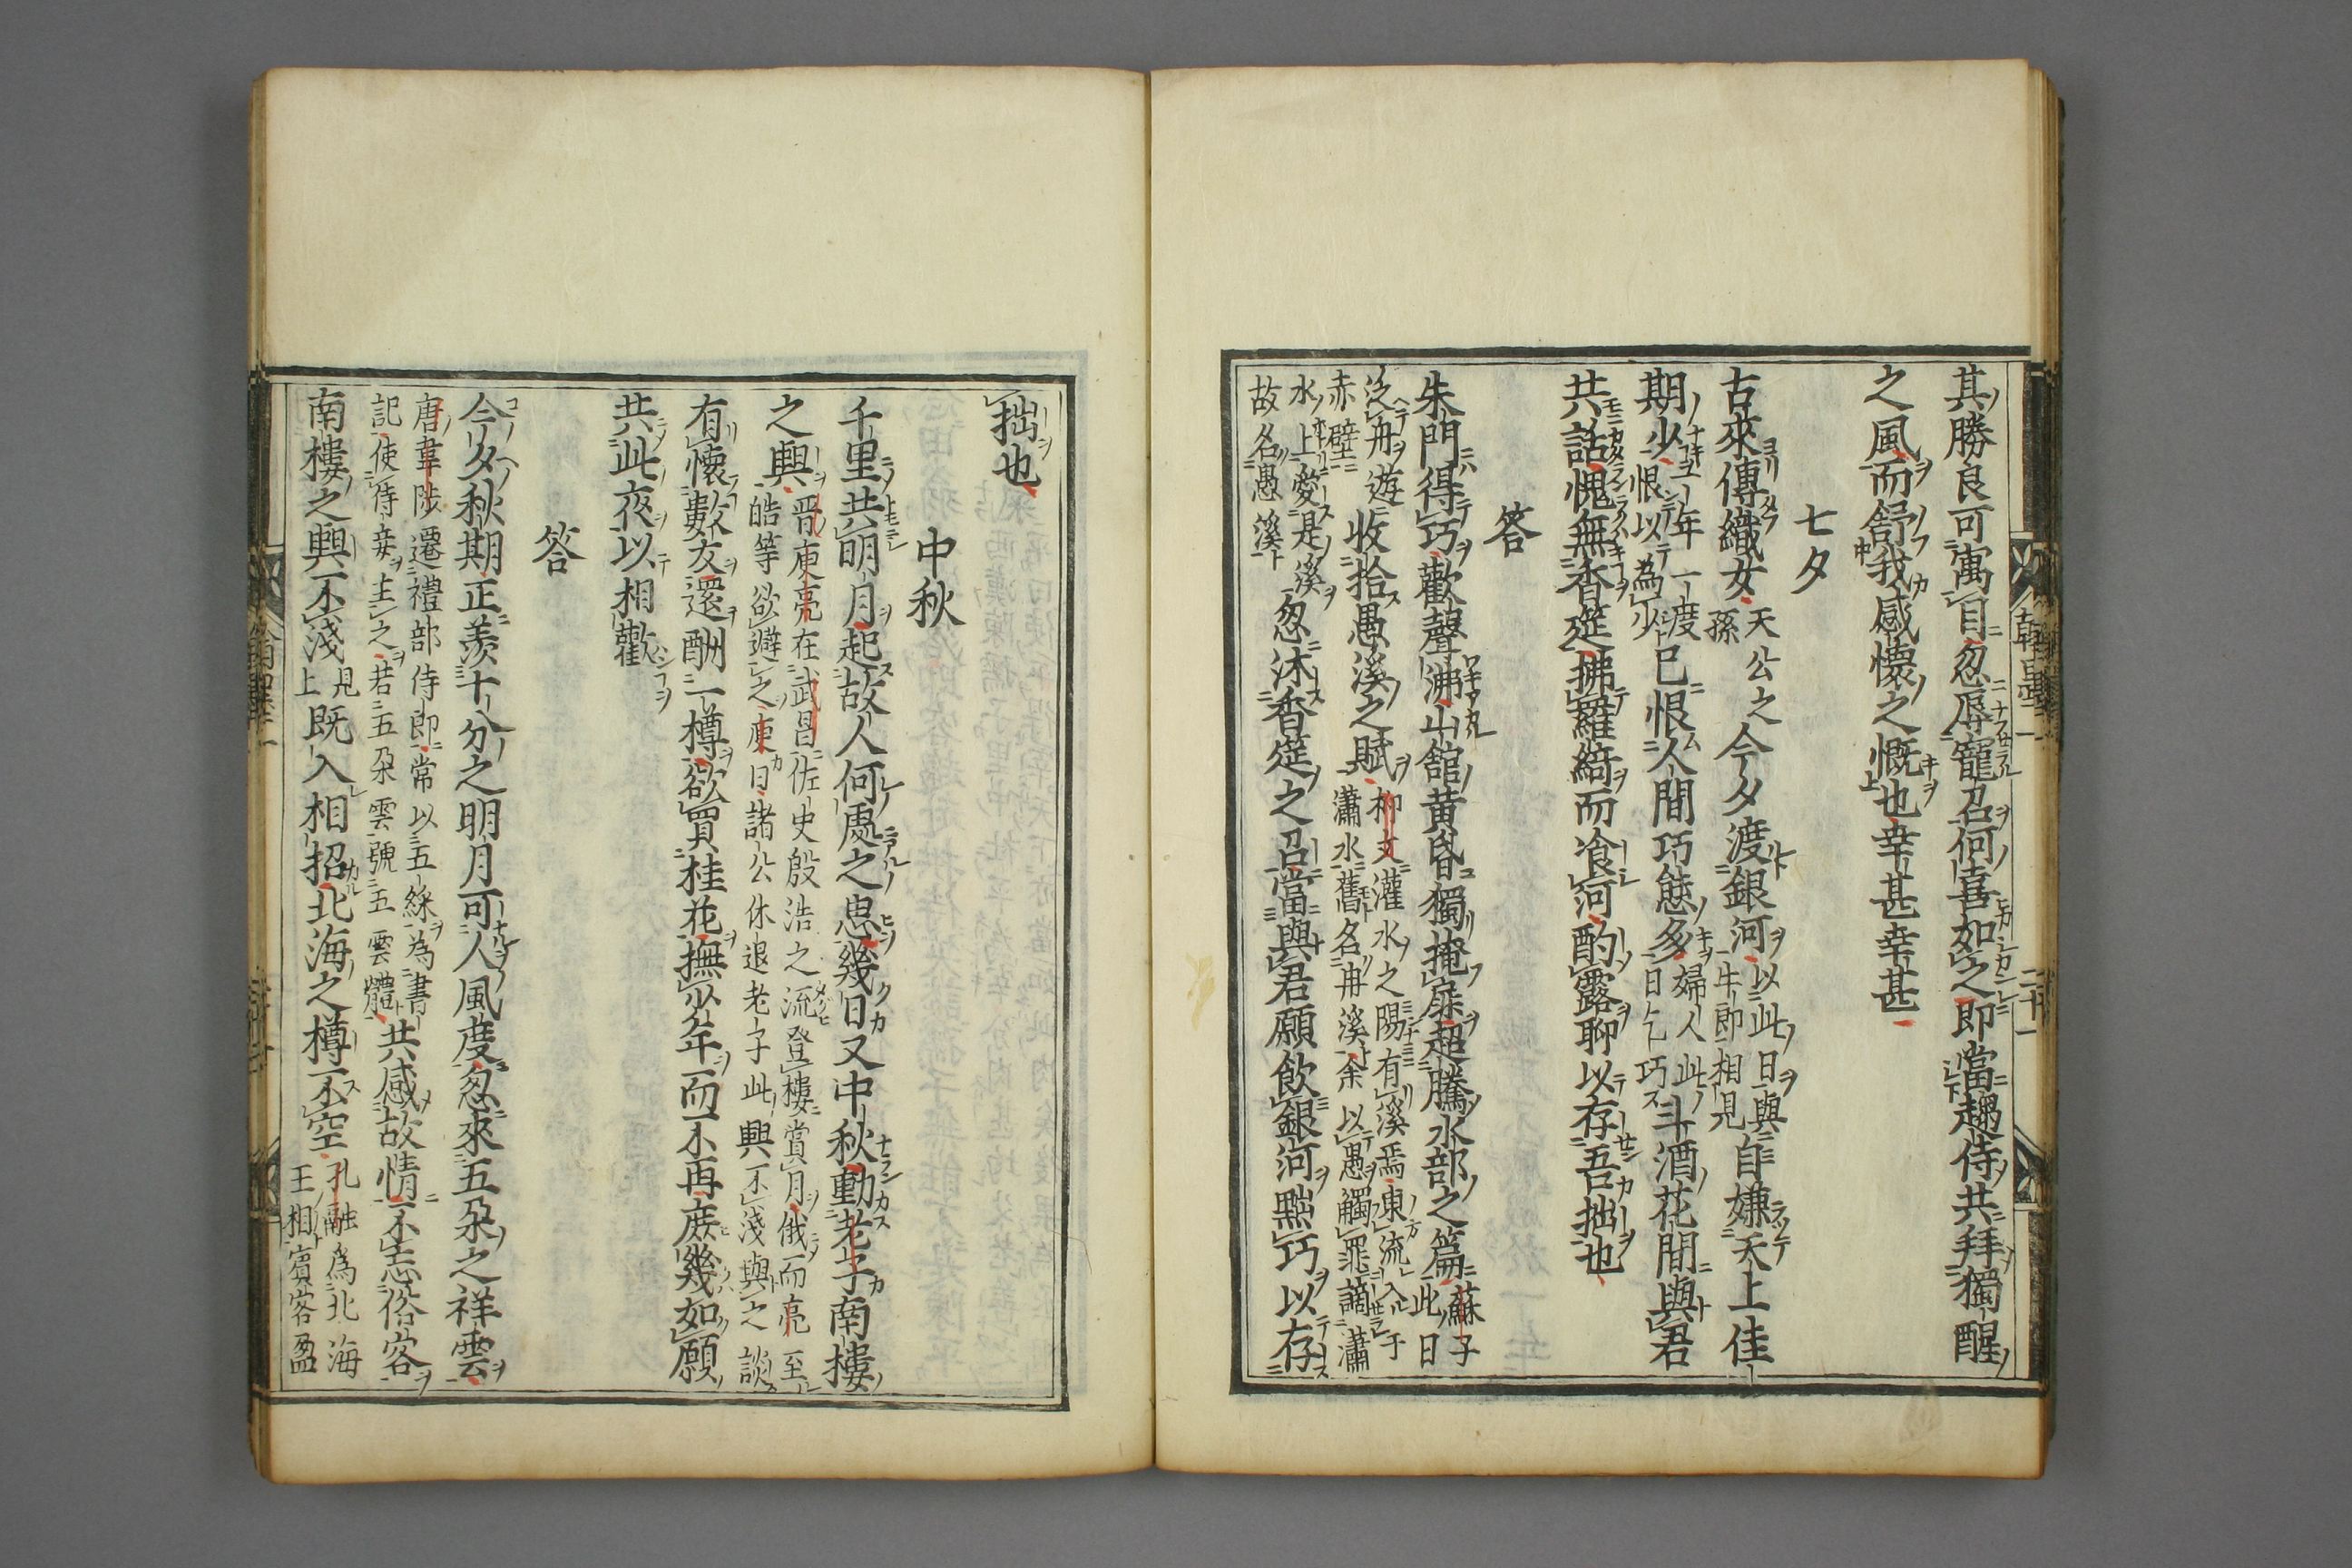 其勝良可寓目忽辱寵召何喜如之即當趨侍共拜獨醒
之風而舒我感懷之慨也幸甚幸甚
七夕
古來傳織女天公之孫今夕渡銀河以此日與牛郎相見自嫌天上佳
期少年一度恨以為少已恨人間巧態多婦人此日乞巧斗酒花間與君
共話愧無香筵拂羅綺而飡河酌露聊以存吾拙也
答
朱門得巧歡聲沸山舘黃昏獨掩扉超騰水部之篇蘇子此日
泛舟遊赤壁收拾愚溪之賦柳文灌水之陽有溪焉東流入于瀟水舊名冉溪余以愚觸罪謫瀟
水上愛是溪故名愚溪忽沐香筵之召當與君願飲銀河㸃巧以存
拙也
中秋
千里共明月起故人何處之思幾日又中秋動老子南樓
之興晋庾亮在武昌佐史殷浩之流登樓賞月俄而亮至皓等欲避之庾曰諸公休退老子此興不淺與之談
有懷數友還酬一樽欲買桂花撫少年而不再庶幾如願
共此夜以相歡
答
今夕秋期正羨十分之明月可人風度忽來五朶之祥雲
唐韋陟遷禮部侍郎常以五綵為書記使侍妾主之若五朶雲號五雲體共感故情不忘俗客
南樓之興不淺見上既入相招北海之樽不空孔融爲北海王相賓客盈